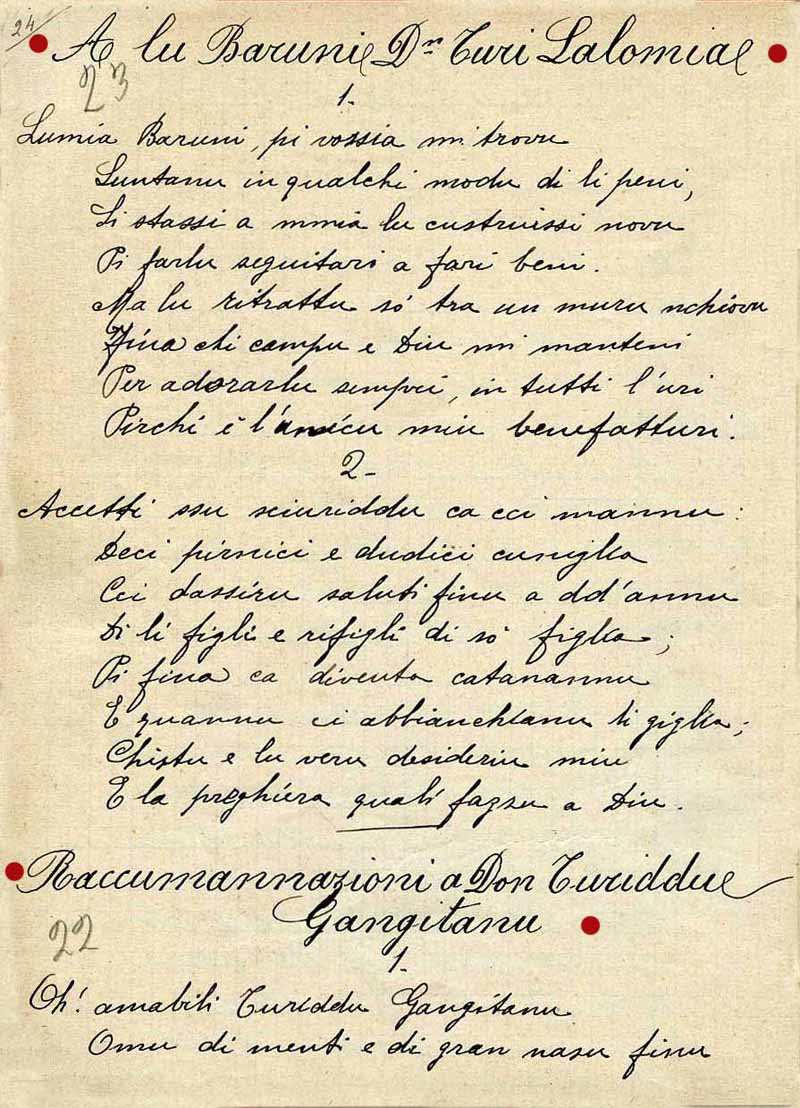 24
A lu Baruni Dn Turi Lalomia
23
1.
Lumia Baruni, pi vossia mi trovu
Luntanu in qualchi modu di li peni,
Si stassi a mmia lu custruissi novu
Pi farlu seguitari a fari beni.
Ma lu ritrattu só tra un muru nchiovu
Fina chi campu e Diu mi manteni
Per adorarlu sempri, in tutti l'uri
Pirchí é l'unicu miu benefatturi.
2-
Accetti ssu sciuriddu ca cci mannu:
Deci pirnici e dudici cuniglia
Cci dassiru saluti finu a dd'annu
Di li figli e rifigli di só figlia;
Pi fina ca diventa catanannu
E quannu ci abbianchianu li giglia;
Chistu e lu veru desideriu miu
E la preghiera quali fazzu a Diu.
Raccumannazioni a Don Turiddu
Gangitanu
22
1.
Oh! amabili Turiddu Gangitanu
Omu di menti e di gran nasu finu